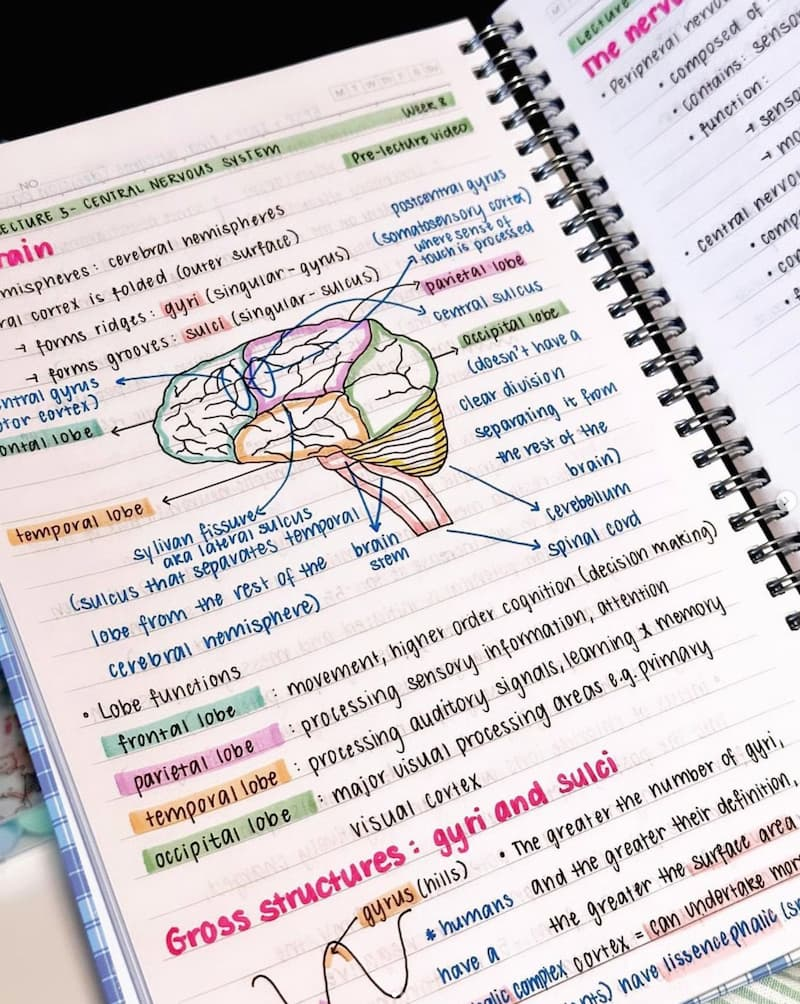 M T W T F S S
NO.
Week 8
LECTURE 5- CENTRAL NERVOUS SYSTEM
Pre-lecture video
cerebral hemispheres
cortex is folded (outer surface)
→ forms ridges: gyri (singular-gyrus)
→ forms grooves: sulci (singular-sulcus)
postcentral gyrus
(somatosensory cortex)
where sense of
touch is processed
parietal lobe
central sulcus
occipital lobe
(doesn't have a
clear division
separating it from
the rest of the
brain)
gyrus
cortex)
lobe
temporal lobe
sylivan fissure
aka lateral sulcus
(sulcus that separates temporal
lobe from the rest of the
cerebral hemisphere)
brain
stem
cerebellum
spinal cord
• Lobe functions
frontal lobe : movement, higher order cognition (decision making)
parietal lobe : processing sensory information, attention
temporal lobe : processing auditory signals, learning & memory
occipital lobe : major visual processing areas e.g. primary
visual cortex
Gross structures: gyri and sulci
gyrus (hills)
• The greater the number of gyri,
and the greater their definition,
the greater the surface area
* humans
have a
complex cortex = can undertake
have lissencephalic
Lecture
The
• Peripheral
• composed of
• contains:
• function:
→
→
• central